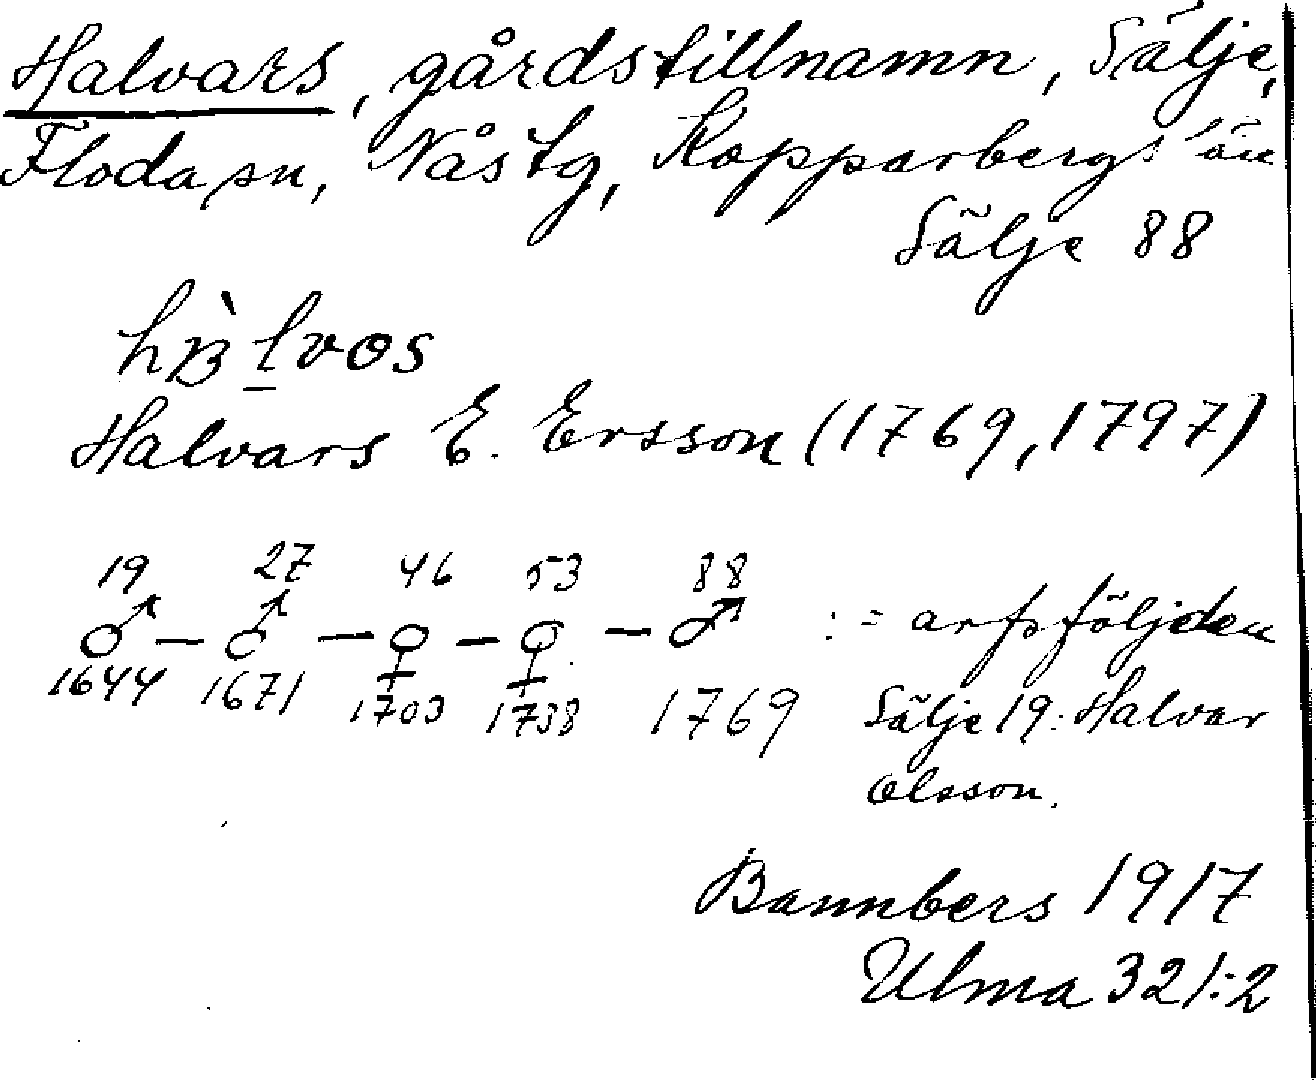 Halvars, gårdstillnamn, Sälje,
Floda sn, Nås tg, Kopparbergs län
Sälje 88
Halvars E. Ersson (1769, 1797)
19 27 46 53 88
♂ — ♂ — ♀ — ♀ — ♂ := arfsföljden
1644 1671 1703 1738 1769 Sälje 19: Halvar
Olsson.
Bannbers 1917
Ulma 321:2